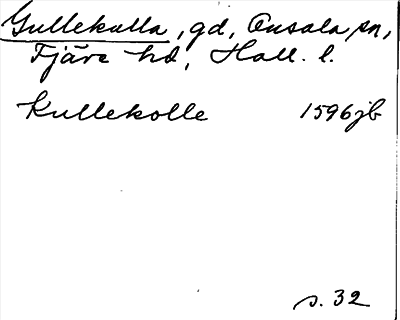 Gullekulla, gd, Onsala sn,
Fjäre hd, Hall. l.
Kullekolle 1596 jb
s. 32